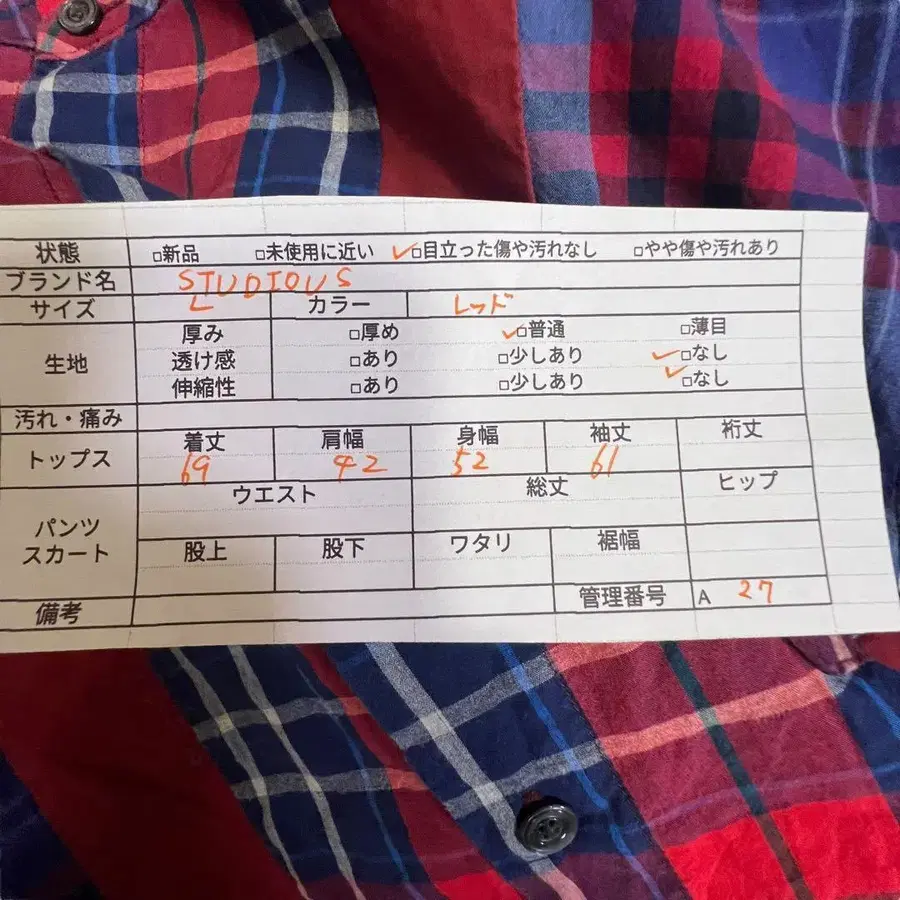 状態 □新品 □未使用に近い ✓□目立った傷や汚れなし □やや傷や汚れあり
ブランド名 STUDIOUS
サイズ L カラー レッド
厚み □厚め ✓□普通 □薄目
生地 透け感 □あり □少しあり ✓□なし
伸縮性 □あり □少しあり ✓□なし
汚れ・痛み
着丈 肩幅 身幅 袖丈 裄丈
トップス 69 42 52 61
ウエスト 総丈 ヒップ
パンツ
スカート 股上 股下 ワタリ 裾幅
備考 管理番号 A 27